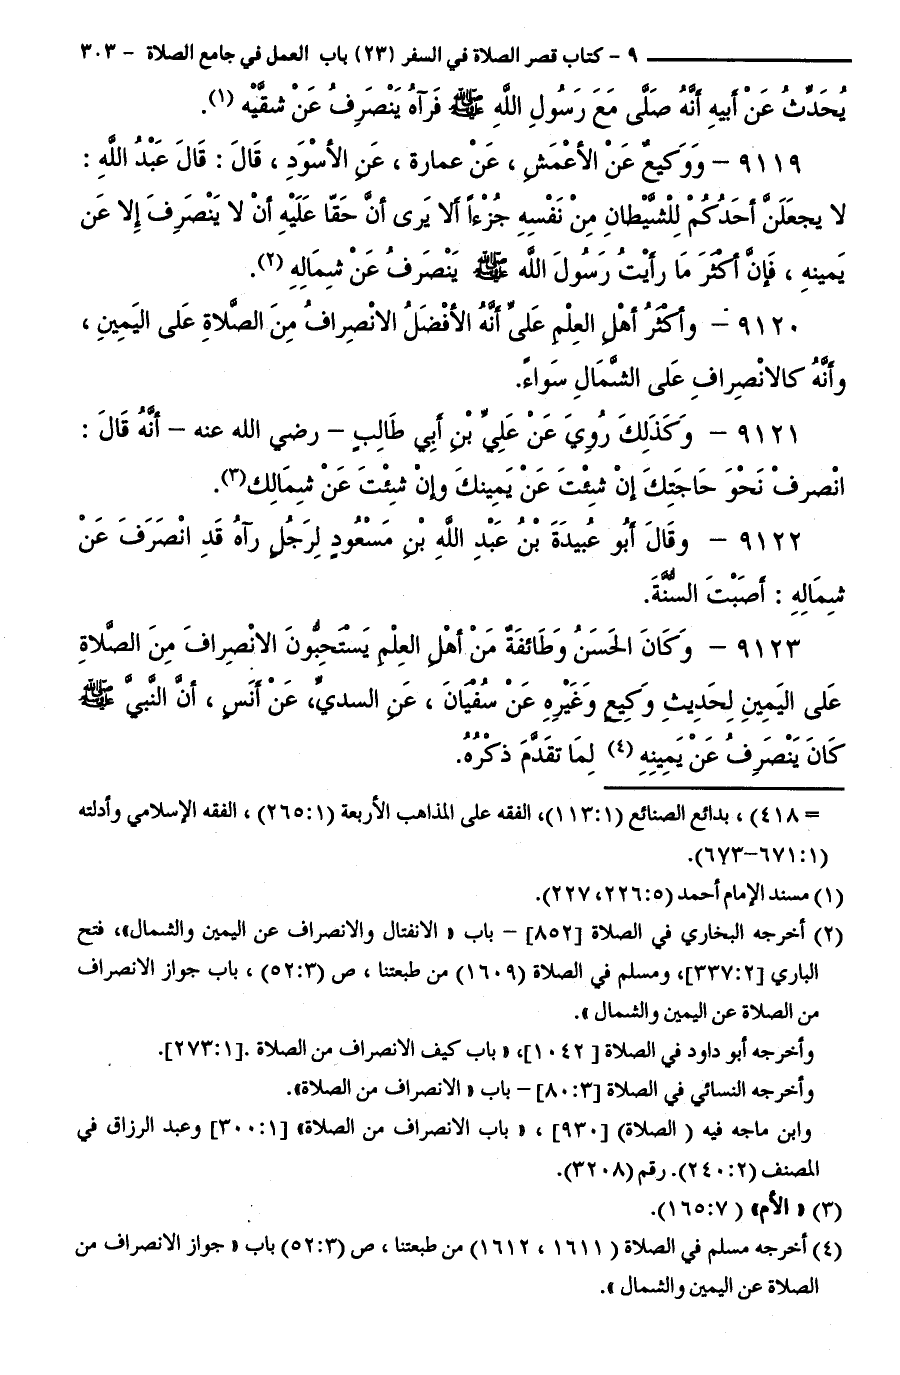 ٩ - كتاب قصر الصلاة في السفر (٢٣) باب العمل في جامع الصلاة - ٣٠٣
يُحَدِّثُ عَنْ أَبِيهِ أَنَّهُ صَلَّى مَعَ رَسُولِ اللَّهِ ﷺ فَرَآهُ يَنْصَرِفُ عَنْ شقَّيْهِ (١).
٩١١٩ - وَوَكِيعٌ عَنْ الأَعْمَشِ ، عَنْ عمارة ، عَنِ الأسْوَدِ ، قَالَ : قَالَ عَبْدُ اللَّهِ :
لا يجعَلَنَّ أحَدُكُمْ لِلشَّيْطانِ مِنْ نَفْسِهِ جُزْءاً ألا يَرى أنَّ حَقّا عَلَيْهِ أنْ لا يَنْصَرِفَ إلا عَن
يَمينِهِ ، فَإنَّ أكْثَرَ مَا رأَيْتُ رَسُولَ اللَّه ﷺ يَنْصَرِفُ عَنْ شِمالِهِ (٢).
٩١٢٠ - وأكْثَرُ أهْلِ العِلْمِ عَلى أنَّهُ الأفْضَلُ الانْصِرافُ مِنَ الصَّلاةِ عَلى اليَمِينِ ،
وأنَّهُ كالانْصِرافِ عَلى الشَّمَالِ سَواءً.
٩١٢١ - وَكَذَلِكَ رُوِيَ عَنْ عَلِيِّ بْنِ أَبِي طَالِبٍ - رضي الله عنه - أَنَّهُ قَالَ :
انْصرفْ نَحْوَ حَاجَتِكَ إنْ شِئْتَ عَنْ يَمِينِكَ وإنْ شِئْتَ عَنْ شِمَالِك(٣).
٩١٢٢ - وقَالَ أَبُو عُبيدَةَ بْنُ عَبْدِ اللَّهِ بْنِ مَسْعُودٍ لِرَجُلٍ رآهُ قَد انْصَرَفَ عَنْ
شِمَالِهِ : أَصَبْتَ السُّنَّةَ.
٩١٢٣ - وَكَانَ الحَسَنُ وَطَائِفَةٌ مَنْ أهْلِ العِلْمِ يَسْتَحِبُّونَ الانْصِرافَ مِنَ الصَّلاةِ
عَلى اليَمِينِ لِحَدِيثِ وَكِيعٍ وَغَيْرِهِ عَنْ سُفْيَانَ ، عَنِ السديِّ، عَنْ أنَسٍ ، أنَّ النَّبيَّ ﷺ
كَانَ يَنْصَرِفُ عَنْ يَمِينِهِ (٤) لِمَا تقَدَّمَ ذكْرُهُ.
= ٤١٨) ، بدائع الصنائع (١١٣:١)، الفقه على المذاهب الأربعة (٢٦٥:١) ، الفقه الإسلامي وأدلته
(٦٧٣-٦٧١:١).
(١) مسند الإمام أحمد (٢٢٦:٥، ٢٢٧).
(٢) أخرجه البخاري في الصلاة [٨٥٢] - باب « الانفتال والانصراف عن اليمين والشمال»، فتح
الباري [٣٣٧:٢]، ومسلم في الصلاة (١٦٠٩) من طبعتنا ، ص (٥٢:٣) ، باب جواز الانصراف
من الصلاة عن اليمين والشمال ».
وأخرجه أبو داود في الصلاة [ ١٠٤٢]، « باب كيف الانصراف من الصلاة .[٢٧٣:١].
وأخرجه النسائي في الصلاة [٨٠:٣] - باب « الانصراف من الصلاة».
وابن ماجه فيه ( الصلاة) [٩٣٠] ، « باب الانصراف من الصلاة» [٣٠٠:١] وعبد الرزاق في
المصنف (٢٤٠:٢). رقم (٣٢٠٨).
(٣) « الأم» ( ١٦٥:٧).
(٤) أخرجه مسلم في الصلاة ( ١٦١١ ، ١٦١٢) من طبعتنا ، ص (٥٢:٣) باب « جواز الانصراف من
الصلاة عن اليمين والشمال ».